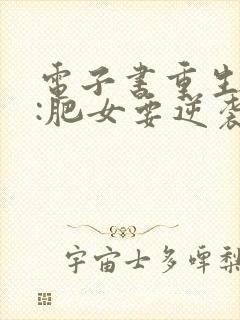 電子書重生
:肥女要逆襲
宇宙士多啤梨